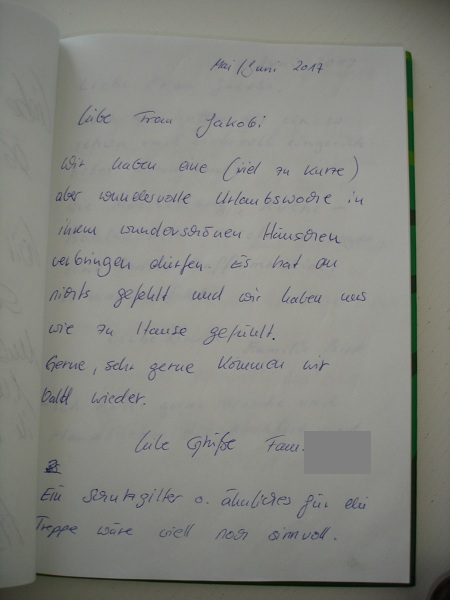 Mai/Juni 2017
Liebe Frau Jakobi
Wir haben eine (viel zu kurze)
aber wundervolle Urlaubswoche in
ihrem wunderschönen Häuschen
verbringen dürfen. Es hat an
nichts gefehlt und wir haben uns
wie zu Hause gefühlt.
Gerne, sehr gerne kommen wir
bald wieder.
Liebe Grüße Fam.
Ein Schutzgitter o. ähnliches für die
Treppe wäre viell noch sinnvoll.